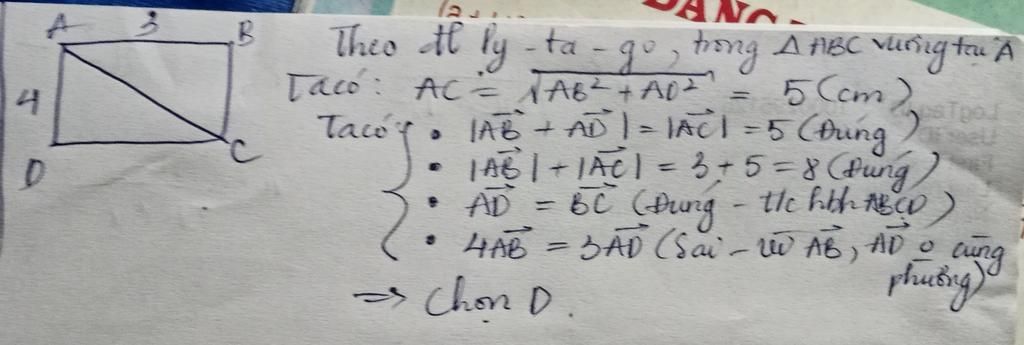 DÀNG
A 3 B
4
D C
Theo đl Py-ta-go, trong Δ ABC vuông tại A
Ta có: AC = √AB² + AD² = 5 (cm)
Ta có { • |AB→ + AD→| = |AC→| = 5 (Đúng)
• |AB→| + |AC→| = 3 + 5 = 8 (Đúng)
• AD→ = BC→ (Đúng - t/c hbh ABCD)
• 4AB→ = 3AD→ (Sai - vì AB→, AD→ o cùng
phương)
=> Chọn D.